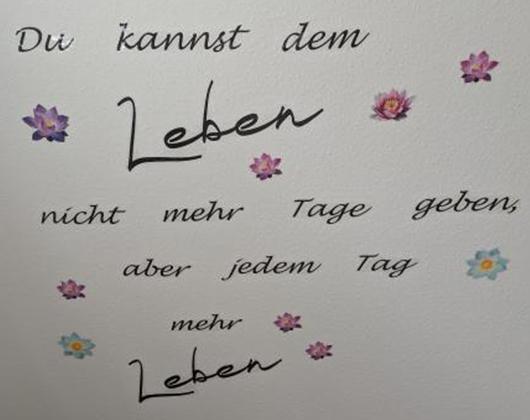 Du kannst dem
Leben
nicht mehr Tage geben,
aber jedem Tag
mehr
Leben